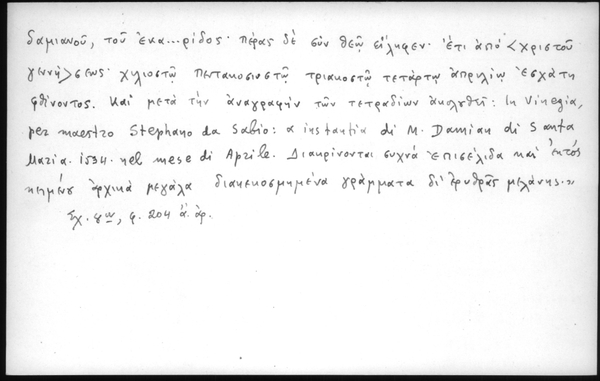 δαμιανοῦ, τοῦ ἐκα...ρίδος· πέρας δὲ σὺν θεῷ εἴληφεν· ἔτι ἀπό <χριστοῦ
γεννή>σεως· χιλιοστῷ πεντακοσιοστῷ τριακοστῷ τετάρτῳ ἀπριλίῳ ἐσχάτῃ
φθίνοντος. Καί μετά τήν ἀναγραφήν τῶν τετραδίων ἀκολουθεῖ: In Vinegia,
per maestro Stephano da Sabio: a instantia di M. Damian di Santa
Maria. 1534. nel mese di Aprile. Διακρίνονται συχνά ἐπισέλιδα καί ἐντός
κειμένου ἀρχικά μεγάλα διακεκοσμημένα γράμματα δι' ἐρυθρᾶς μελάνης.»
Σχ. 8ον, φ. 204 ἀ. ἀρ.